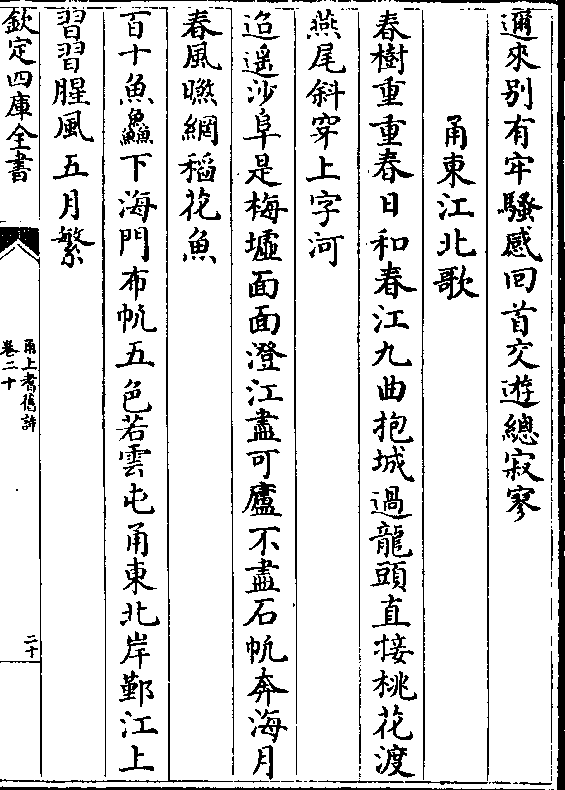 邇來别有牢騷感回首交遊總寂寥
甬東江北歌
春樹重重春日和春江九曲抱城過龍頭直接桃花渡
燕尾斜穿上字河
迢遥沙阜是梅墟面面澄江盡可廬不盡石帆奔海月
春風㬠網稻花魚
百十魚䲜下海門布帆五色若雲屯甬東北岸鄞江上
習習腥風五月繁
欽定四庫全書
甬上耆舊詩
卷二十
二十